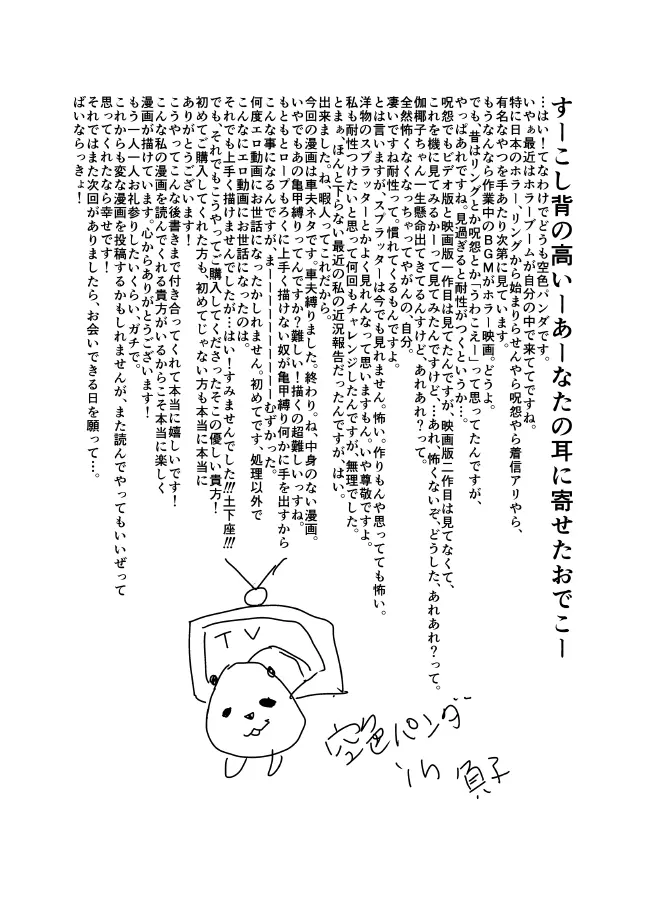 すーこし背の高いーあーなたの耳に寄せたおでこー
…はい！てなわけでどうも空色パンダです。
いやぁ最近はホラーブームが自分の中で来ててですね。
特に日本のホラー、リングから始まりらせんやら呪怨やら着信アリやら、
有名なやつを手あたり次第に見ています。
もうなんなら作業中のＢＧＭがホラー映画。どうよ。
でも、昔はリングとか呪怨とか「うわこえー」って思ってたんですが、
やっぱあれですね。見過ぎると耐性がつくというか…。
呪怨でもビデオ版と映画版一作目は見てたんですが、映画版二作目は見てなくて、
これを機に見てみるかーって見てみたんですけど…あれ、怖くないぞ、どうした、あれあれ？って。
伽椰子ちゃん一生懸命出てきてるんすけど、あれあれ？って。
全然怖くなくなっちゃってやがんの自分。
凄いですね耐性って。慣れてくるもんですよ。
とは言いますが、スプラッターは今でも見れません。怖い。作りもんや思ってても怖い。
洋物のスプラッターとかよく見れんなって思いますもん、いや尊敬ですよ。
私も耐性つけたいと思って何回もチャレンジしたんですが、無理でした。
とまぁ、ほんと下らない最近の私の近況報告だったんですが、はい。
出来ました。ね、暇人ってこれだから。
今回の漫画は車夫ネタです。車夫縛りました。終わり。ね、中身のない漫画。
いやでもあの亀甲縛りってんですか？難しい！描くの超難しいっすね。
もともとロープもろくに上手く描けない奴が亀甲縛り何かに手を出すから
こんな事になるんですが、まーーーーーーーーーむずかった。
何度エロ動画にお世話になったかしれません。初めてです、処理以外で
こんなにエロ動画にお世話になったのは。
それでも上手く描けませんでしたが…はい！すみませんでした!!!土下座!!!
でも、それでもこうやってご購入してくださったそこの優しい貴方！
初めてご購入してくれた方も、初めてじゃない方も本当に本当に
ありがとうございます！
こうやってこんな後書きまで付き合ってくれて本当に嬉しいです！
こんな私の漫画を読んでくれる貴方がいるからこそ本当に楽しく
漫画が描けています。心からありがとうございます！
もう一人一人お礼参りしたいくらい、ガチで。
これからも変な漫画を投稿するかもしれませんが、また読んでやってもいいぜって
思ってくれたなら幸せです！
それではまた次回がありましたら、お会いできる日を願って…。
ばいならっきょ！
TV
空色パンダ
in 貞子